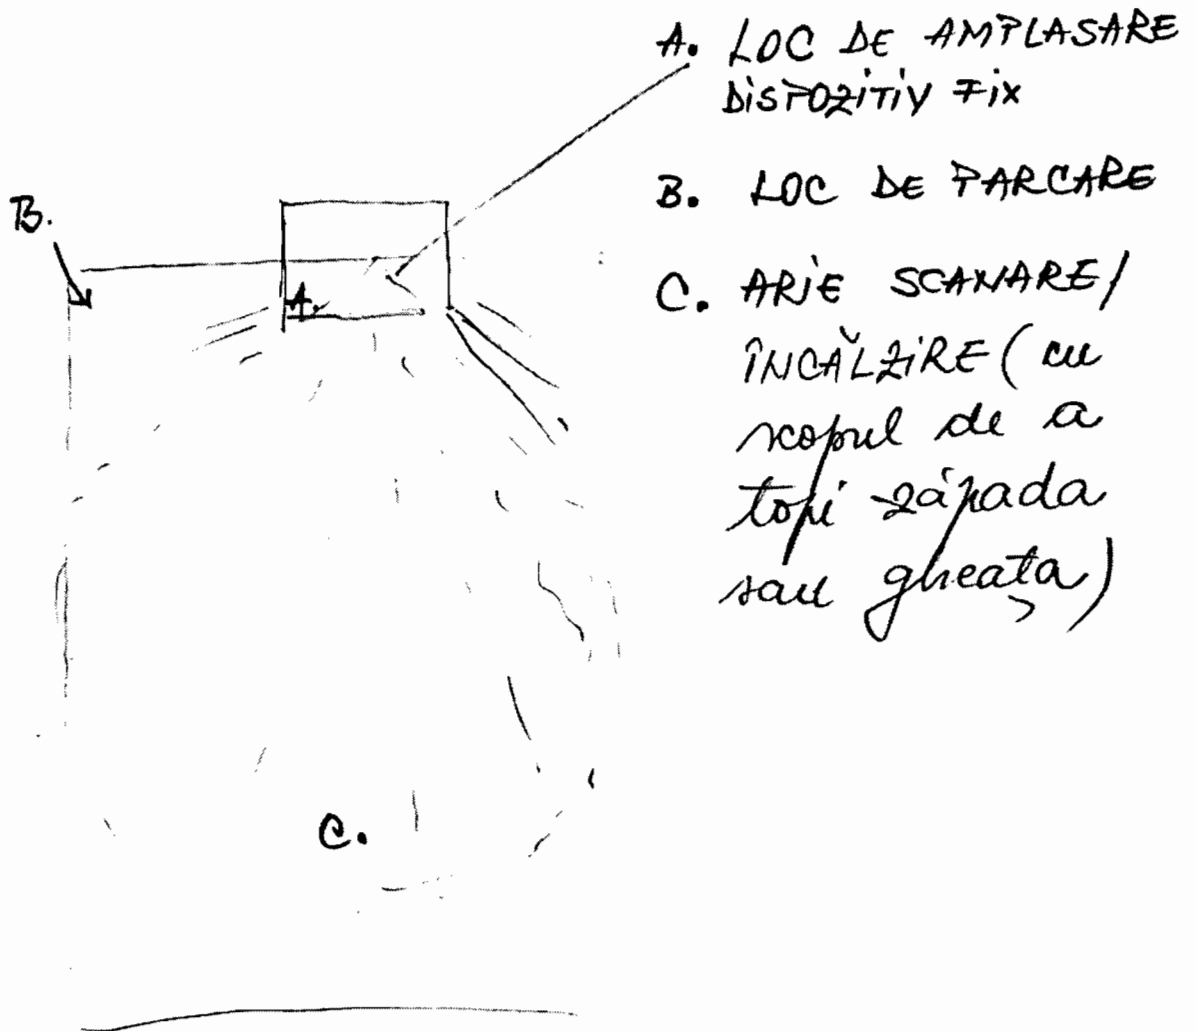 A. LOC DE AMPLASARE
DISPOZITIV FIX
B. LOC DE PARCARE
C. ARIE SCANARE/
ÎNCĂLZIRE (cu
scopul de a
topi zăpada
sau gheața)
B.
A.
C.